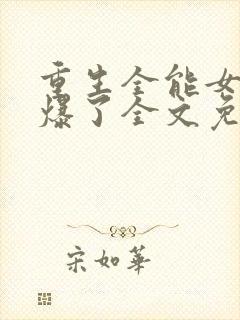 重生全能女
爆了全文免
宋如華